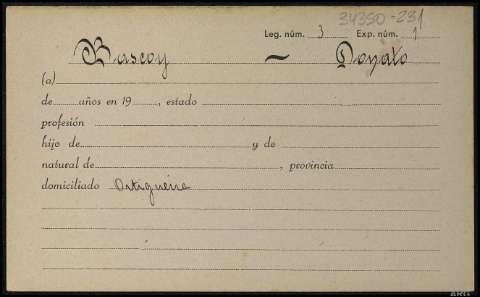 34350-231
Leg. núm. 3 Exp. núm. 1
Bascoy ~ Donato
(a)
de años en 19 , estado
profesión
hijo de y de
natural de , provincia
domiciliado Ortigueira